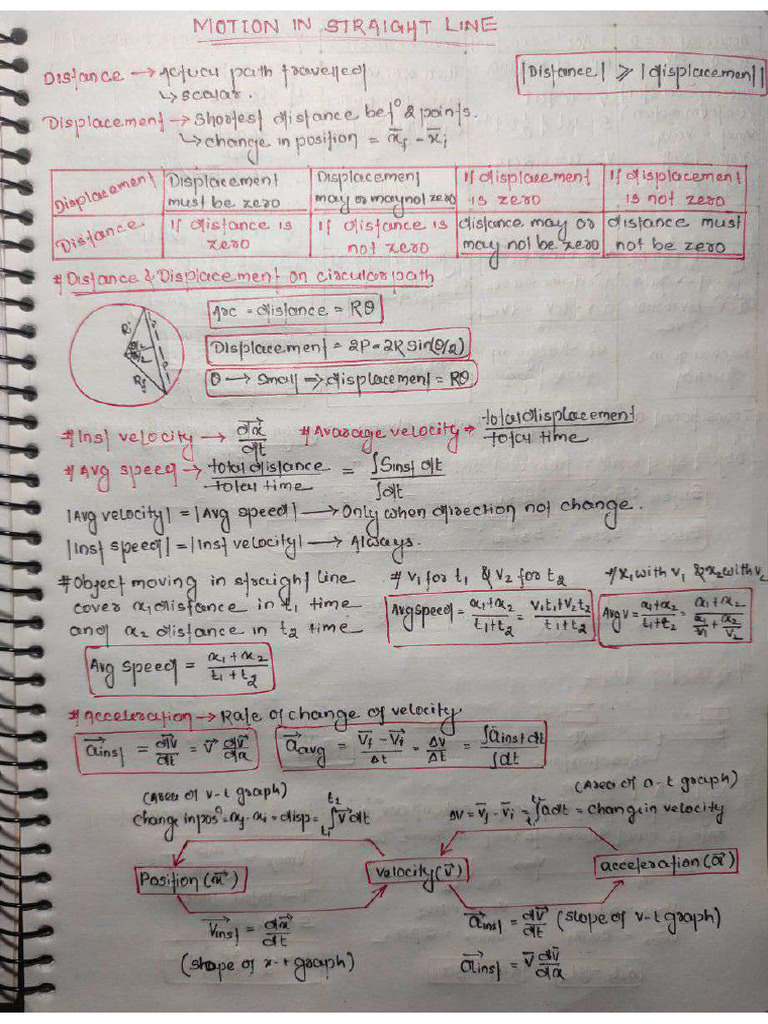 MOTION IN STRAIGHT LINE
Distance → Actual path travelled
↳ scalar.
|Distance| ⩾ |displacement|
Displacement → Shortest distance betⁿ 2 points.
↳ change in position = x̄f - x̄i
Displacement | Displacement must be zero | Displacement may or may not zero | If displacement is zero | If displacement is not zero
Distance | If distance is zero | If distance is not zero | distance may or may not be zero | distance must not be zero
# Distance & Displacement on circular path
Arc = distance = Rθ
Displacement = 2P = 2R Sin(θ/2)
θ → Small ⇒ displacement = Rθ
# Inst velocity → dx⃗/dt # Avarage velocity → total displacement/total time
# Avg speed → total distance/total time = ∫Sinst dt/∫dt
|Avg velocity| = |Avg speed| → Only when direction not change.
|Inst speed| = |Inst velocity| → Always.
# Object moving in straight line
cover x1 distance in t1 time
and x2 distance in t2 time
Avg speed = x1+x2/t1+t2
# v1 for t1 & v2 for t2
Avg speed = x1+x2/t1+t2 = v1t1+v2t2/t1+t2
# x1 with v1 & x2 with v2
Avg v = x1+x2/t1+t2 = x1+x2/x1/v1+x2/v2
# Acceleration → Rate of change of velocity
a⃗inst = dv⃗/dt = v⃗ dv⃗/dx
a⃗avg = v⃗f - v⃗i/Δt = Δv/Δt = ∫a⃗inst dt/∫dt
(Area of v-t graph)
change in posⁿ = xf - xi = disp = t1∫t2 v⃗dt
(Area of a-t graph)
ΔV = v̄f - v̄i = t1∫t2 adt = change in velocity
Position (x⃗)
velocity (v⃗)
acceleration (a⃗)
v⃗inst = dx⃗/dt
(shope of x-t graph)
a⃗inst = dv⃗/dt (slope of v-t graph)
a⃗inst = v⃗ dv̄/dx